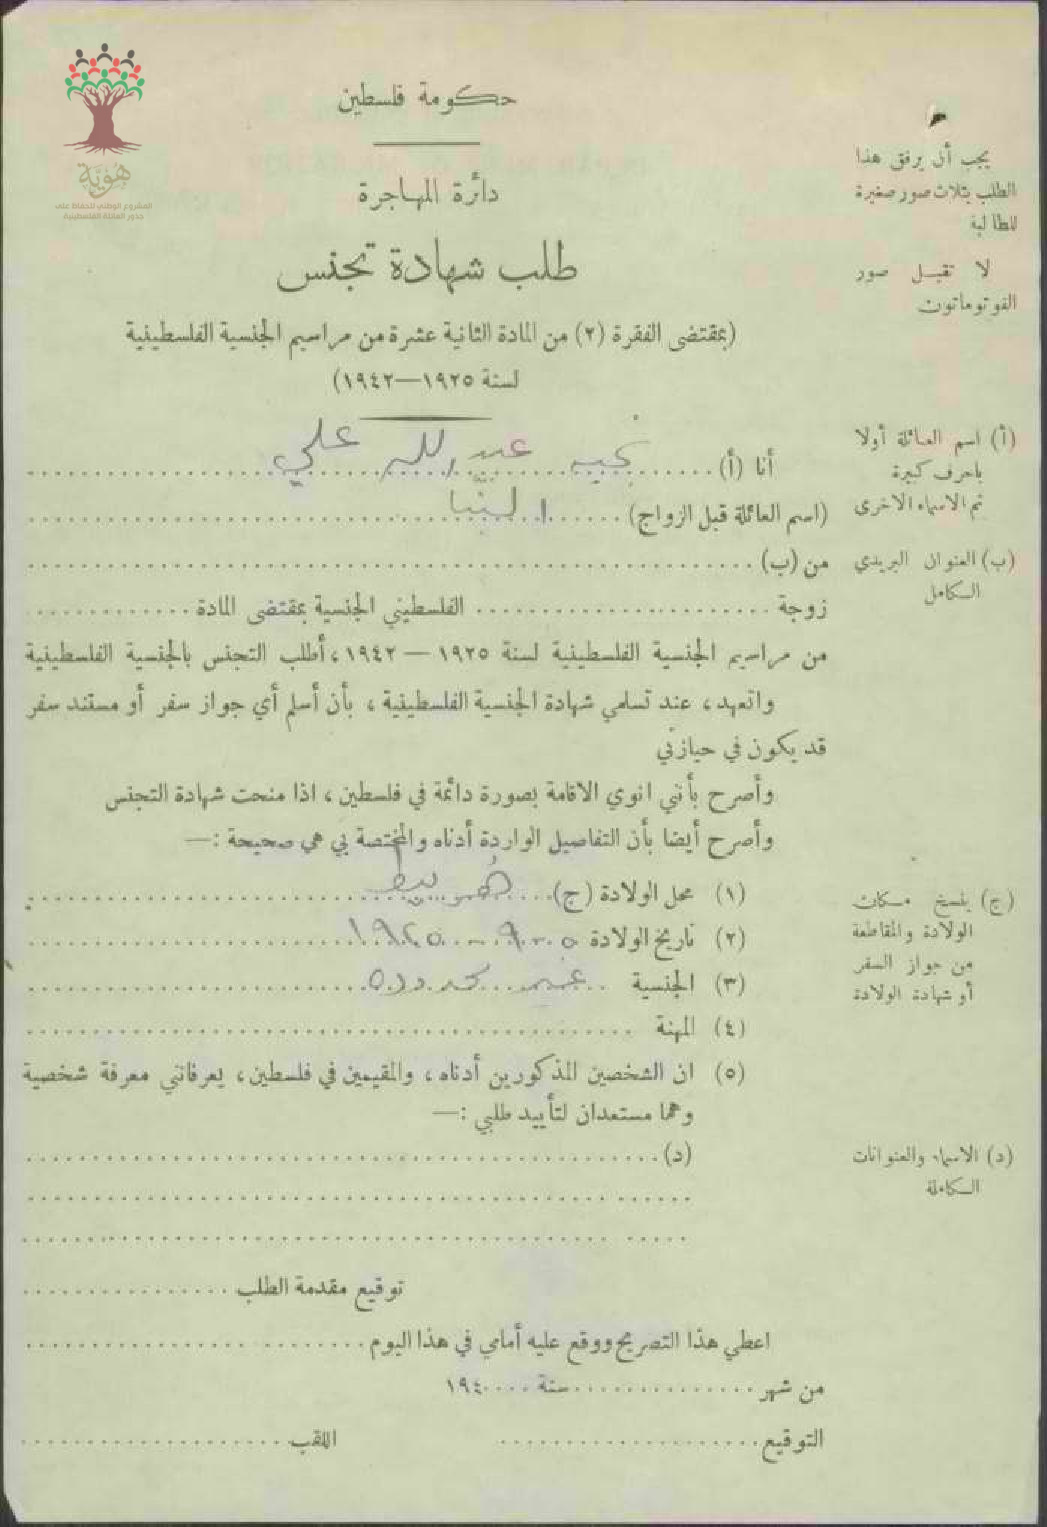 حكومة فلسطين
دائرة المهاجرة
طلب شهادة تجنس
(بمقتضى الفقرة (٢) من المادة الثانية عشرة من مراسيم الجنسية الفلسطينية
لسنة ١٩٢٥—١٩٤٢)
هُويّة
المشروع الوطني للحفاظ على
جذور العائلة الفلسطينية
يجب أن يرفق هذا
الطلب بثلاث صور صغيرة
للطالبة
لا تقبل صور
الفوتوماتون
(أ) اسم العائلة أولا
باحرف كبيرة
ثم الاسماء الاخرى
(ب) العنوان البريدي
الكامل
أنا (أ) عبد الله علي
(اسم العائلة قبل الزواج)
من (ب)
زوجة الفلسطيني الجنسية بمقتضى المادة
من مراسيم الجنسية الفلسطينية لسنة ١٩٢٥ — ١٩٤٢، أطلب التجنس بالجنسية الفلسطينية
واتعهد، عند تسلمي شهادة الجنسية الفلسطينية، بأن أسلم أي جواز سفر أو مستند سفر
قد يكون في حيازتي
وأصرح بأنني انوي الاقامة بصورة دائمة في فلسطين، اذا منحت شهادة التجنس
وأصرح أيضا بأن التفاصيل الواردة أدناه والمختصة بي هي صحيحة :—
(١) محل الولادة (ج) هربيط
(٢) تاريخ الولادة ٥-٩-١٩٢٥
(٣) الجنسية غير محدوده
(٤) المهنة
(٥) ان الشخصين المذكورين أدناه، والمقيمين في فلسطين، يعرفانني معرفة شخصية
وهما مستعدان لتأييد طلبي :—
(د)
(ج) ينسخ مكان
الولادة والمقاطعة
من جواز السفر
أو شهادة الولادة
(د) الاسماء والعنوانات
الكاملة
توقيع مقدمة الطلب
اعطي هذا التصريح ووقع عليه أمامي في هذا اليوم
من شهر سنة ١٩٤
التوقيع اللقب